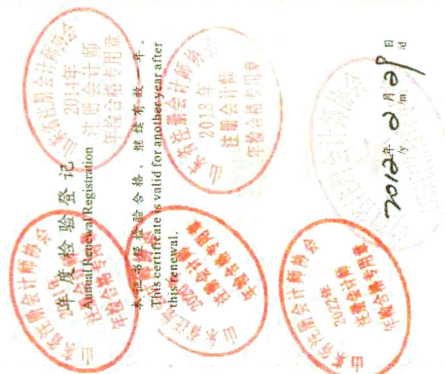 年度检验登记
Annual Renewal Registration
本证书经检验合格，继续有效一年。
This certificate is valid for another year after
this renewal.
山东省注册会计师协会
2014年
注册会计师
年检合格专用章
山东省注册会计师协会
2018年
注册会计师
年检合格专用章
山东省注册会计师协会
年检合格专用章
2020
注册会计师
年检合格专用章
山东省注册会计师协会
2022年
注册会计师
年检合格专用章
2012年 2月 29日
/y /m /d